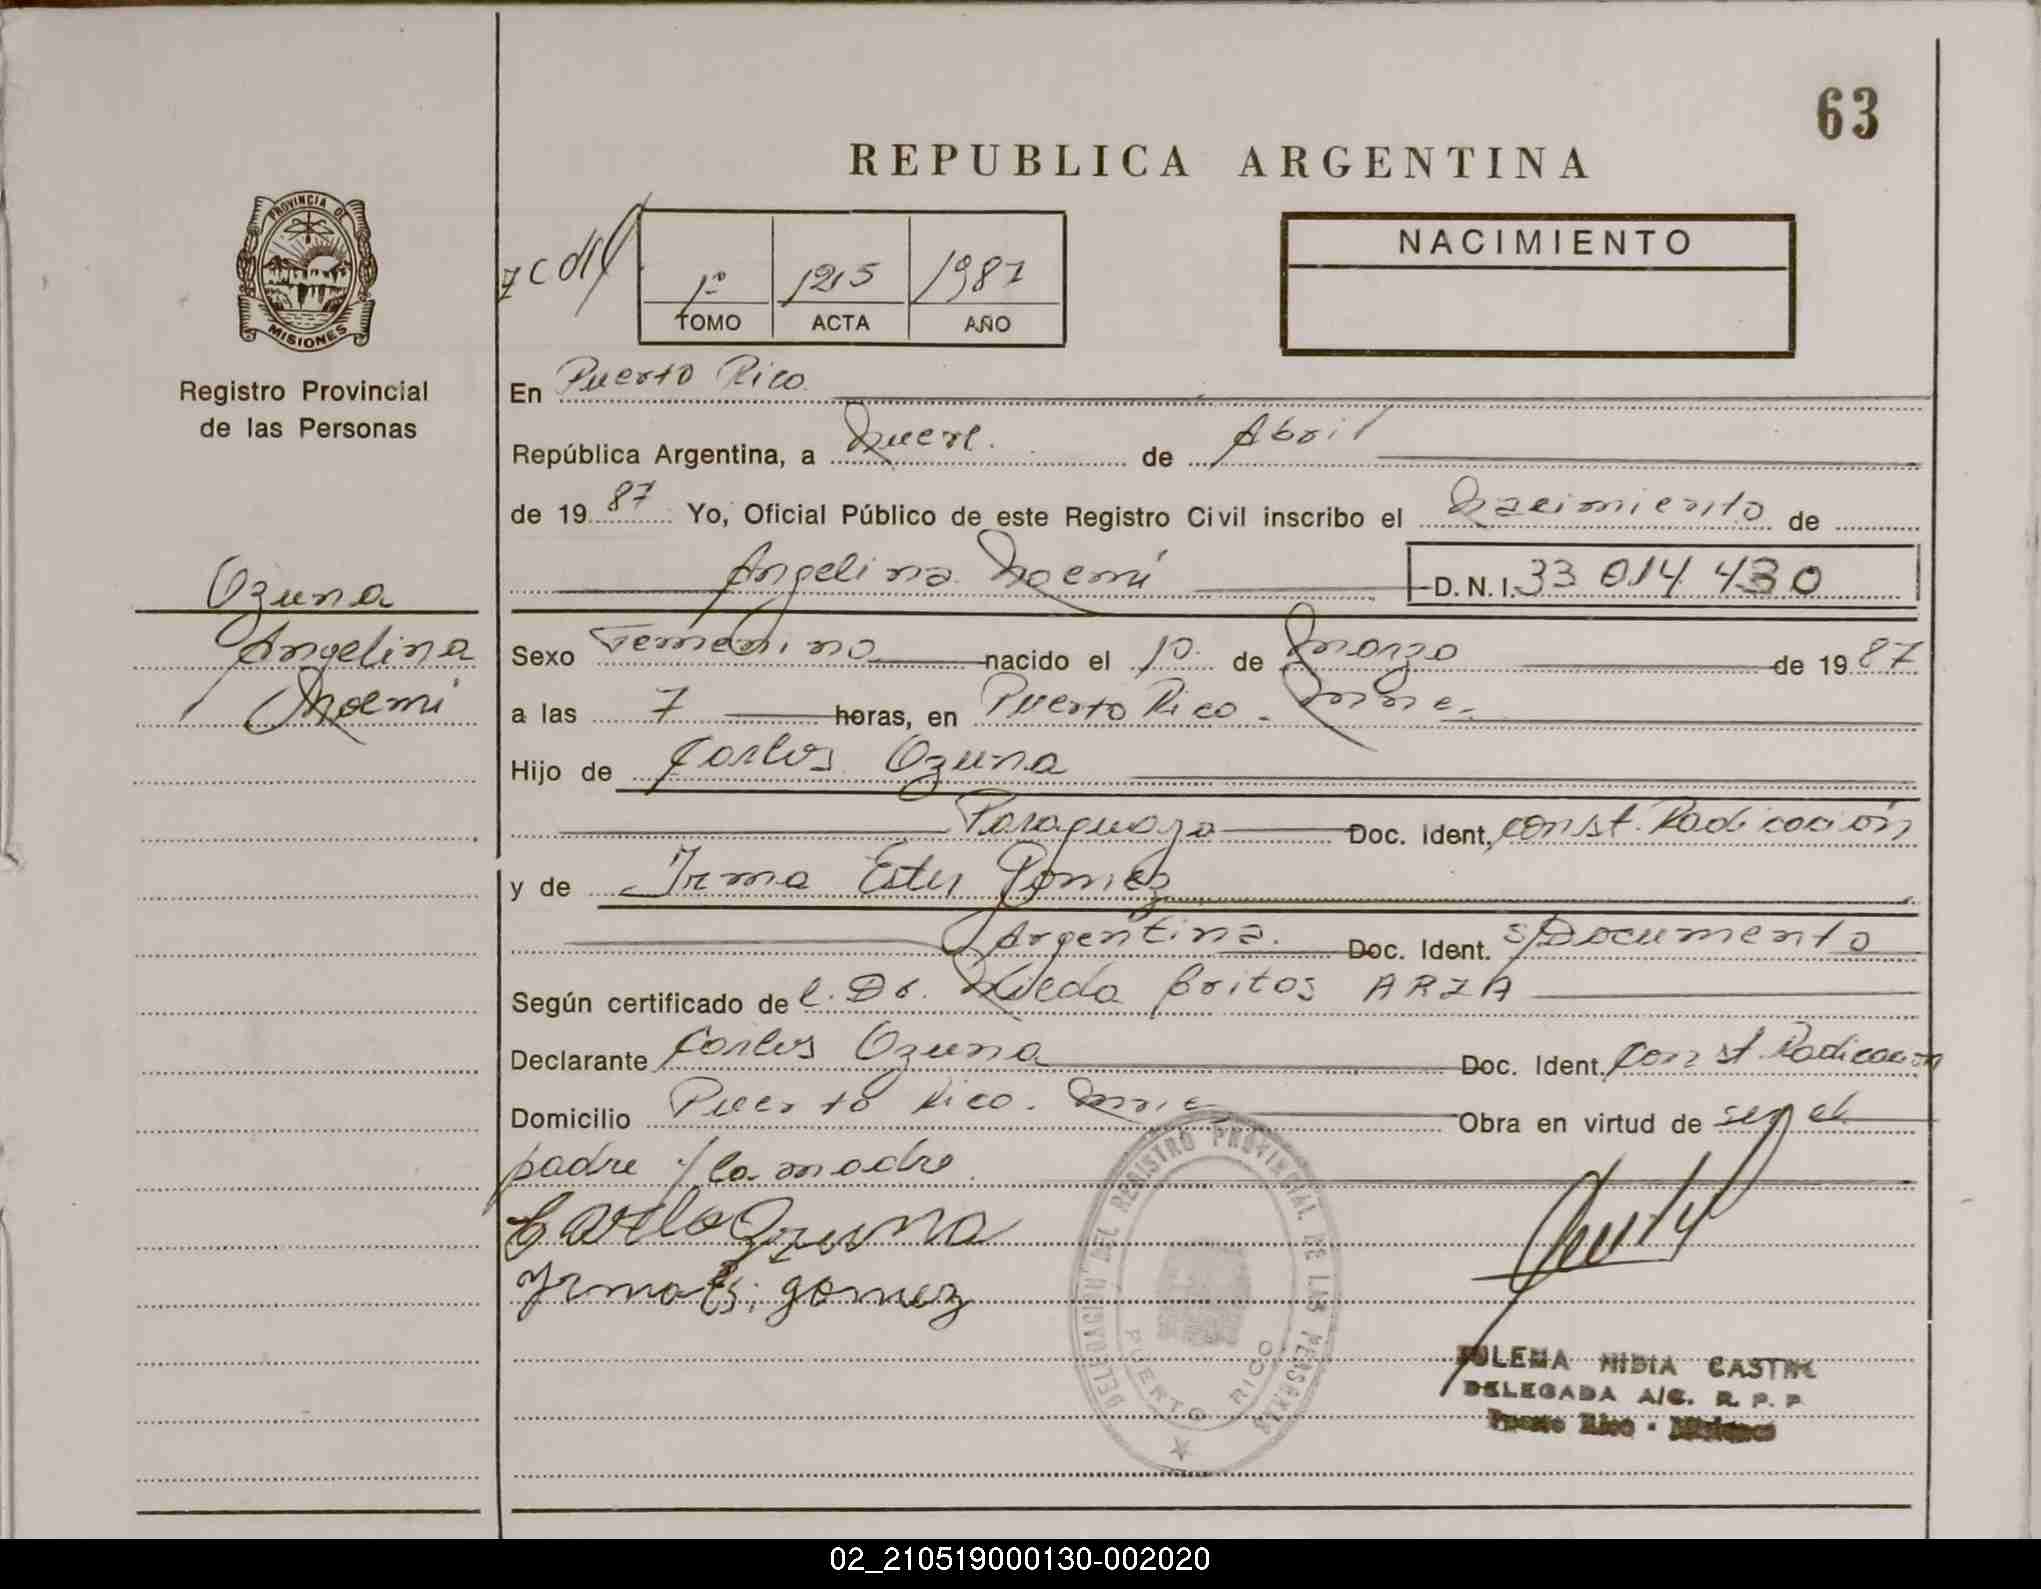 63
REPUBLICA ARGENTINA
PROVINCIA DE
MISIONES
Registro Provincial
de las Personas
1º 125 1987
TOMO ACTA AÑO
NACIMIENTO
En Puerto Rico
República Argentina, a Nueve de Abril
de 19 87 Yo, Oficial Público de este Registro Civil inscribo el Nacimiento de
Angelina Noemí D. N. I. 33 014 430
Ozuna
Angelina
Noemi
Sexo Femenino nacido el 10 de Marzo de 19 87
a las 7 horas, en Puerto Rico - Mnes.
Hijo de Carlos Ozuna
Paraguaya Doc. Ident. const. Radicación
y de Irma Ester Gomez
Argentina. Doc. Ident. s/Documento
Según certificado de l. Dr. Britos ARZA
Declarante Carlos Ozuna Doc. Ident. Const Radicación
Domicilio Puerto Rico. Obra en virtud de ser el
padre y la madre
Carlo Ozuna
Irma Es. gomez
DELEGACION DEL REGISTRO PROVINCIAL DE LAS PERSONAS
PUERTO RICO
NIDIA CASTRO
DELEGADA A/C. R. P. P
Puerto Rico - Misiones
02_210519000130-002020